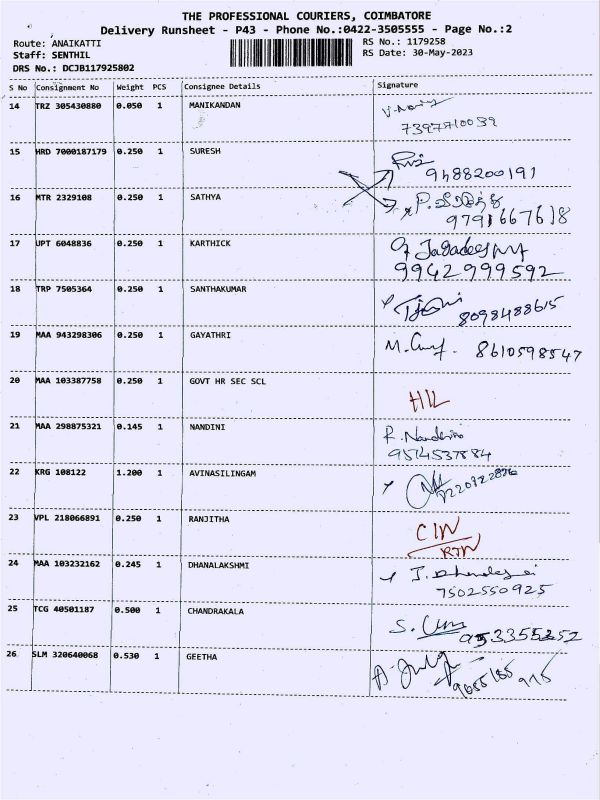 THE PROFESSIONAL COURIERS, COIMBATORE
Delivery Runsheet - P43 - Phone No.:0422-3505555 - Page No.:2
Route: ANAIKATTI RS No.: 1179258
Staff: SENTHIL RS Date: 30-May-2023
DRS No.: DCJB117925802
S No Consignment No Weight PCS Consignee Details Signature
14 TRZ 305430880 0.050 1 MANIKANDAN
15 HRD 7000187179 0.250 1 SURESH
9488200191
16 MTR 2329108 0.250 1 SATHYA
9791667618
17 UPT 6048836 0.250 1 KARTHICK
9942999592
18 TRP 7505364 0.250 1 SANTHAKUMAR
8098488615
19 MAA 943298306 0.250 1 GAYATHRI
8610598547
20 MAA 103387758 0.250 1 GOVT HR SEC SCL
21 MAA 298875321 0.145 1 NANDINI
9514537884
22 KRG 108122 1.200 1 AVINASILINGAM
23 VPL 218066891 0.250 1 RANJITHA
24 MAA 103232162 0.245 1 DHANALAKSHMI
7502550925
25 TCG 40501187 0.500 1 CHANDRAKALA
26 SLM 320640068 0.530 1 GEETHA